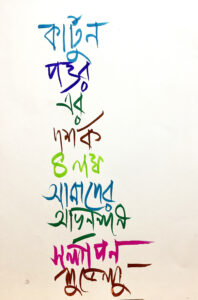 কার্টুন
পত্তর
এর
দর্শক
৪ লক্ষ
আমাদের
অভিনন্দন